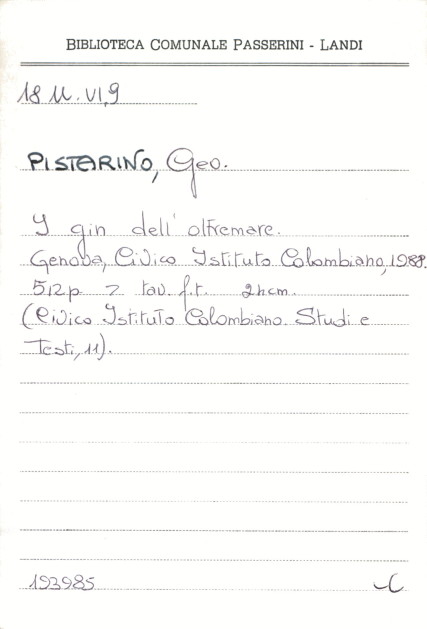 BIBLIOTECA COMUNALE PASSERINI - LANDI
18 U. VI,9
PISTARINO, Geo.
I gin dell'oltremare.
Genova, Civico Istituto Colombiano, 1988.
512 p 7 tav. f.t. 24cm.
(Civico Istituto Colombiano. Studi e
Testi, 11).
193985